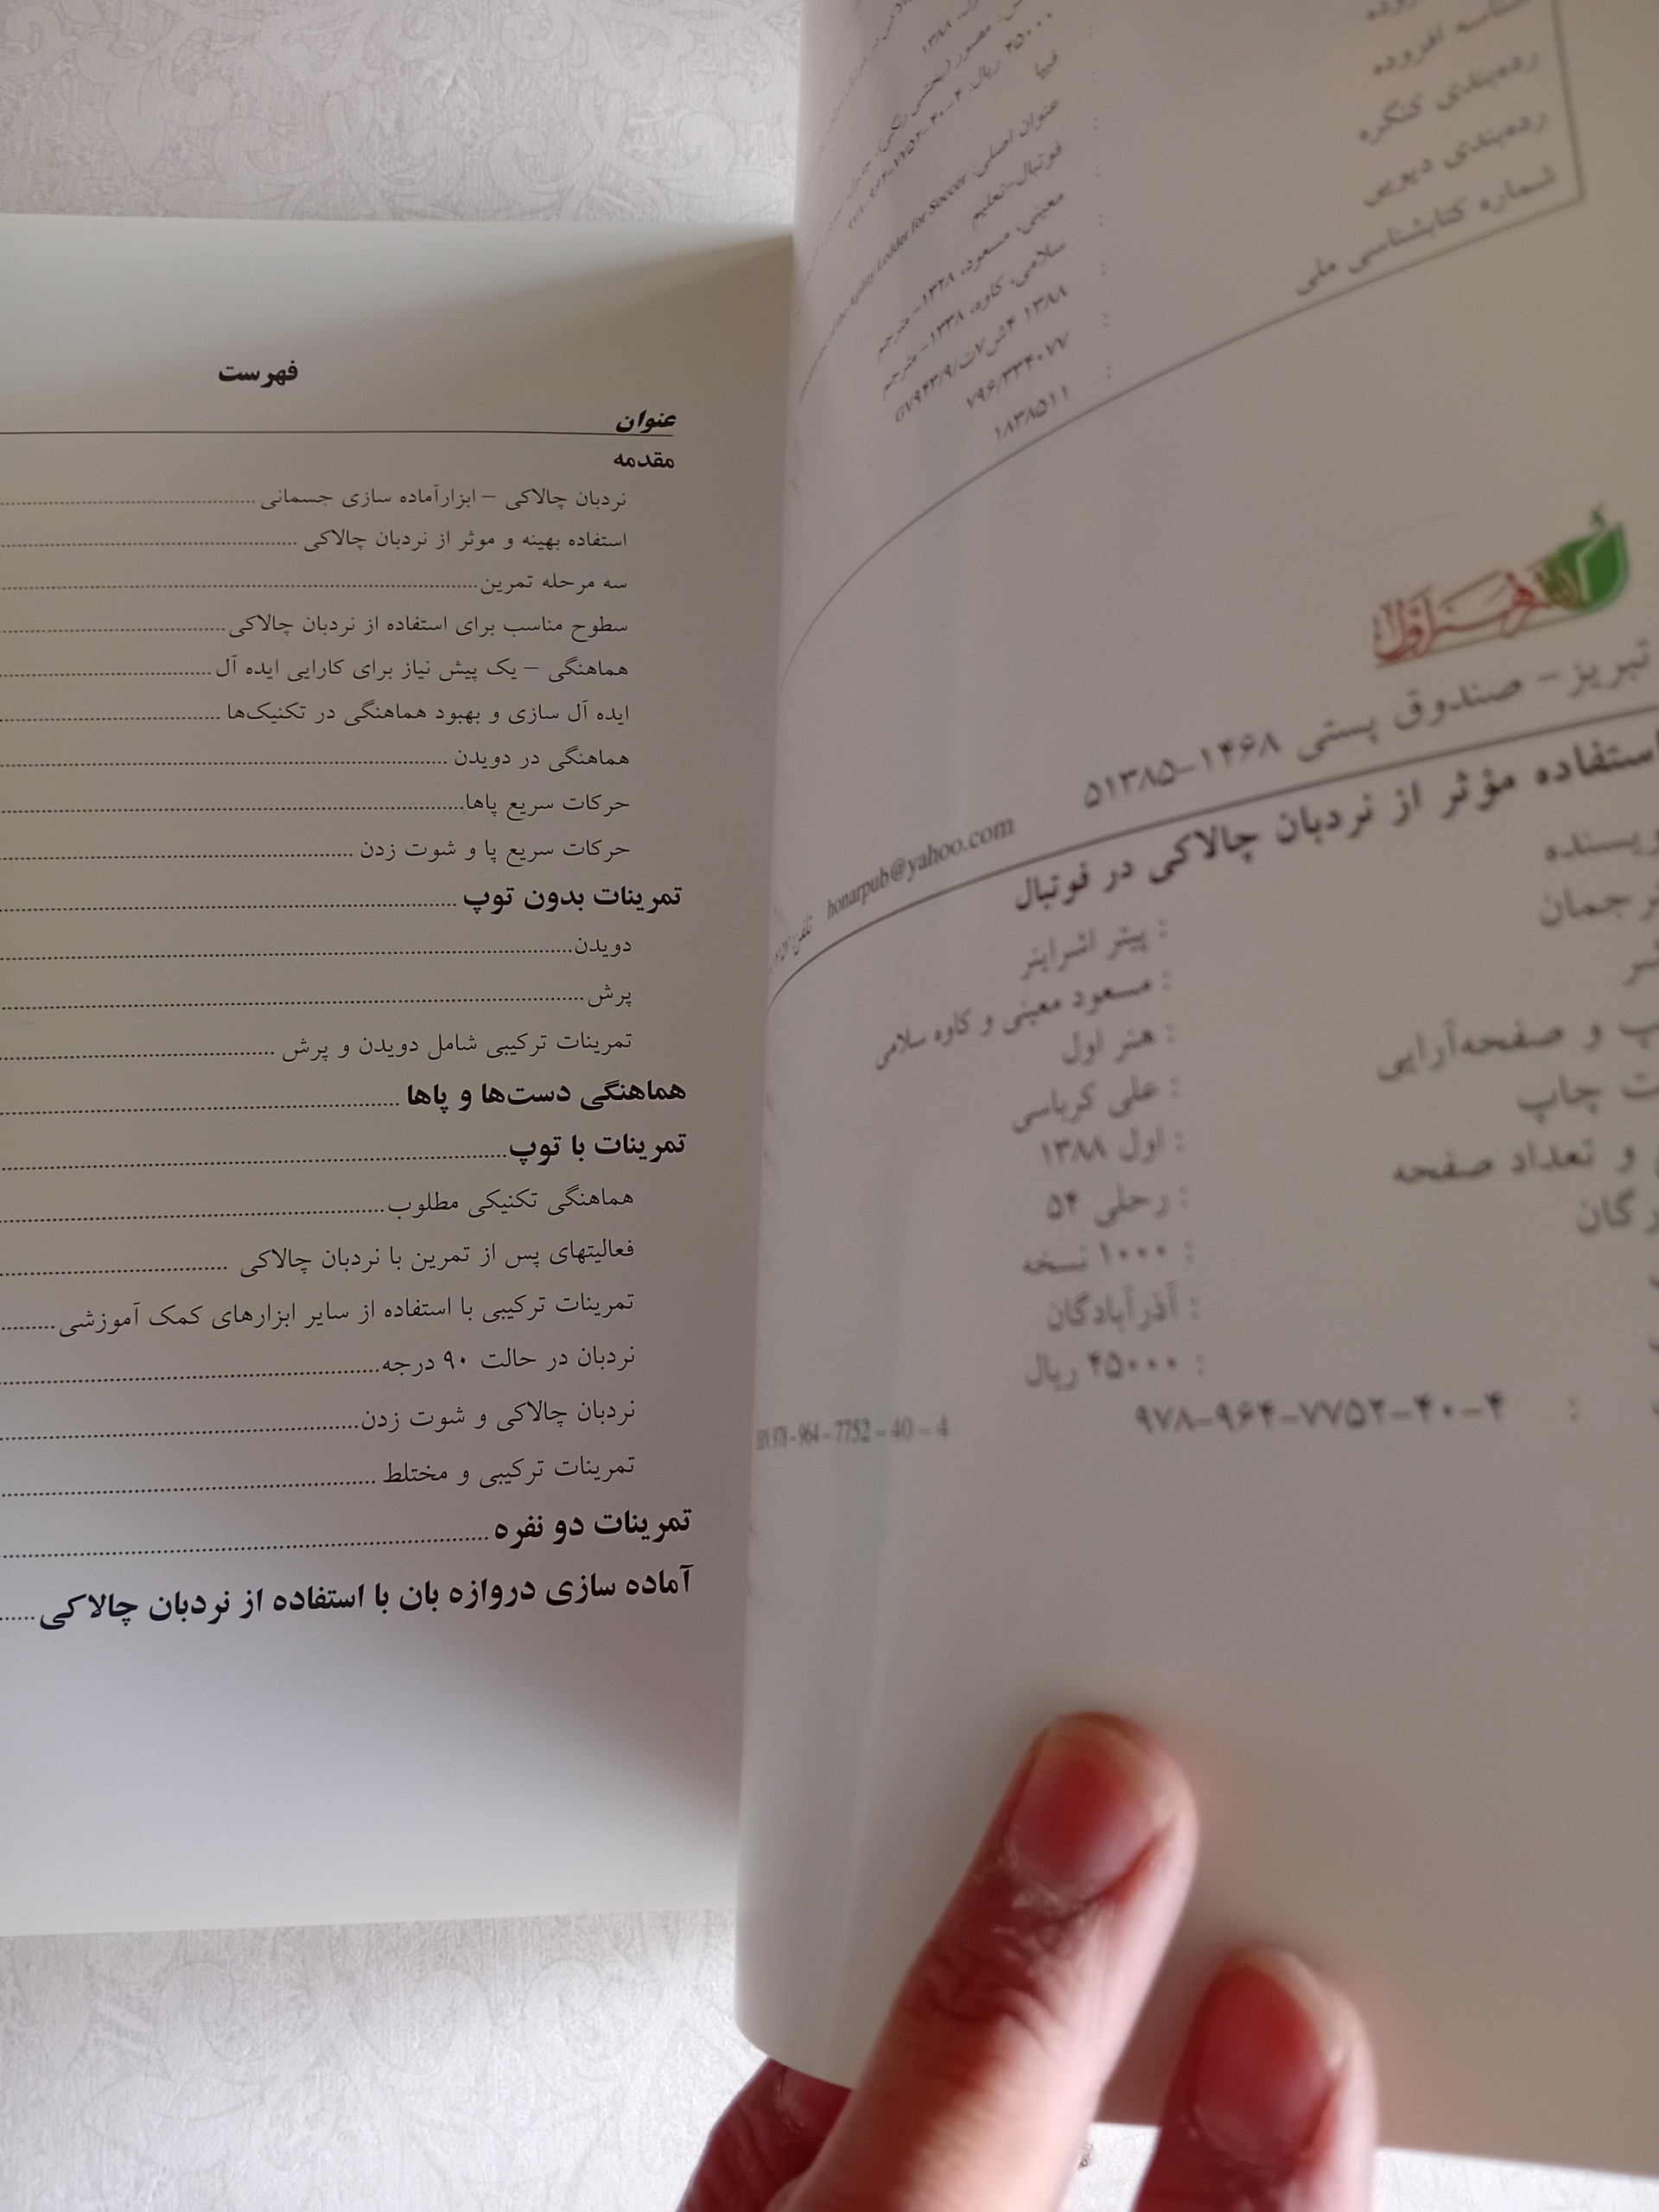 شناسه افزوده
رده‌بندی کنگره
رده‌بندی دیویی
شماره کتابشناسی ملی
۱۳۸۸
۴۵۰۰۰ ریال: ۴-۴۰-۷۷۵۲-۹۶۴-۹۷۸
فیپا
عنوان اصلی: Agility Ledder for Soccer
فوتبال-تعلیم
معینی، مسعود، ۱۳۲۸- مترجم
سلامی، کاوه، ۱۳۳۸- مترجم
۱۳۸۸ ۴ش۷ت/GV۹۴۳/۹
۷۹۶/۳۳۴۰۷۷
۱۸۳۸۵۱۱
هنر اول
تبریز- صندوق پستی ۱۴۶۸-۵۱۳۸۵
تلفن honarpub@yahoo.com
استفاده مؤثر از نردبان چالاکی در فوتبال
نویسنده : پیتر اشراینر
مترجمان : مسعود معینی و کاوه سلامی
: هنر اول
و صفحه‌آرایی : علی کرباسی
چاپ : اول ۱۳۸۸
و تعداد صفحه : رحلی ۵۴
: ۱۰۰۰ نسخه
: آذرآبادگان
: ۴۵۰۰۰ ریال
: ۴-۴۰-۷۷۵۲-۹۶۴-۹۷۸
ISBN: 978 – 964 – 7752 – 40 – 4
فهرست
عنوان
مقدمه
نردبان چالاکی – ابزارآماده سازی جسمانی
استفاده بهینه و موثر از نردبان چالاکی
سه مرحله تمرین
سطوح مناسب برای استفاده از نردبان چالاکی
هماهنگی – یک پیش نیاز برای کارایی ایده آل
ایده آل سازی و بهبود هماهنگی در تکنیک‌ها
هماهنگی در دویدن
حرکات سریع پاها
حرکات سریع پا و شوت زدن
تمرینات بدون توپ
دویدن
پرش
تمرینات ترکیبی شامل دویدن و پرش
هماهنگی دست‌ها و پاها
تمرینات با توپ
هماهنگی تکنیکی مطلوب
فعالیتهای پس از تمرین با نردبان چالاکی
تمرینات ترکیبی با استفاده از سایر ابزارهای کمک آموزشی
نردبان در حالت ۹۰ درجه
نردبان چالاکی و شوت زدن
تمرینات ترکیبی و مختلط
تمرینات دو نفره
آماده سازی دروازه بان با استفاده از نردبان چالاکی